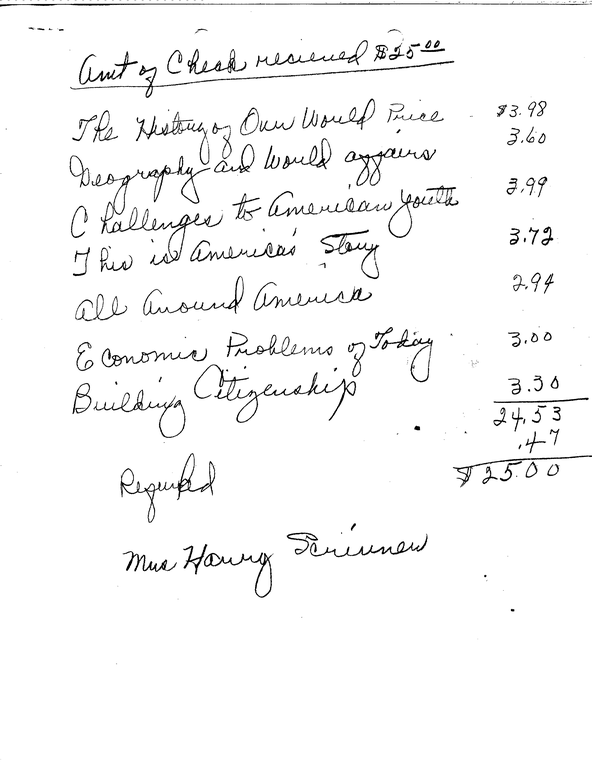 Amt of Check recieved $25.00
The History of Our World Price $3.98
Geography and World affairs 3.60
Challenges to American Youth 3.99
This is America's Story 3.72
All Around America 2.94
Economic Problems of Today 3.00
Building Citizenship 3.30
24.53
.47
$25.00
Mrs Harry